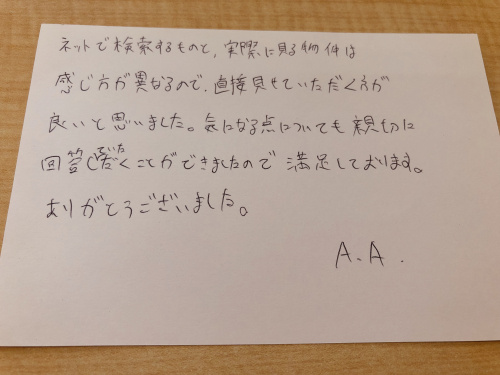 ネットで検索するものと、実際に見る物件は
感じ方が異なるので、直接見せていただく方が
良いと思いました。気になる点についても親切に
回答していただくことができましたので満足しております。
ありがとうございました。
A.A.